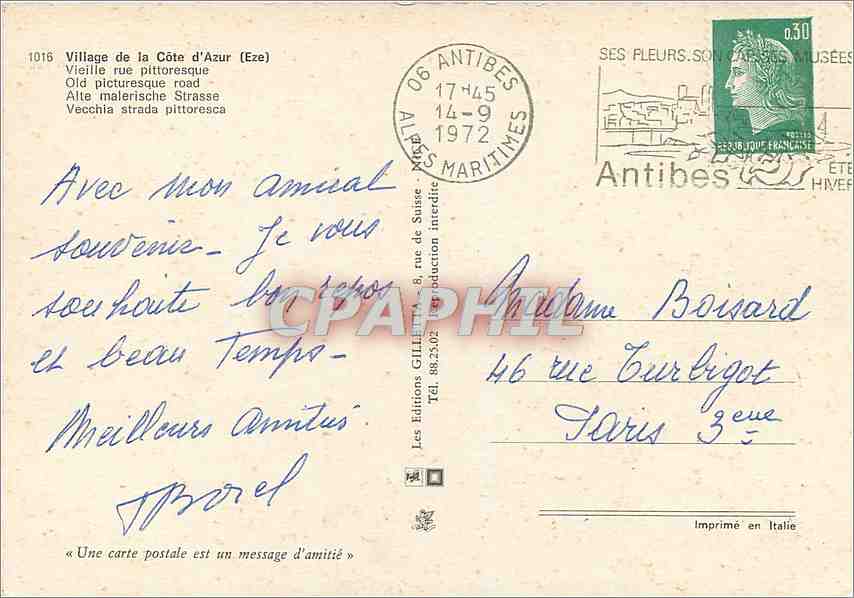 1016 Village de la Côte d'Azur (Eze)
Vieille rue pittoresque
Old picturesque road
Alte malerische Strasse
Vecchia strada pittoresca
06 ANTIBES
17H45
14-9
1972
ALPES MARITIMES
SES FLEURS. SON CAP. SES MUSÉES
Antibes
ÉTÉ
HIVER
0,30
POSTES
REPUBLIQUE FRANÇAISE
Avec mon amical
souvenir - Je vous
souhaite bon repos
et beau Temps -
Meilleurs amitiés.
Borel
« Une carte postale est un message d'amitié »
Les Editions GILLETTA - 8, rue de Suisse - NICE
Tél. 88.25.02 Reproduction interdite
CPAPHIL
Madame Boisard
46 rue Turbigot
Paris 3eme
Imprimé en Italie